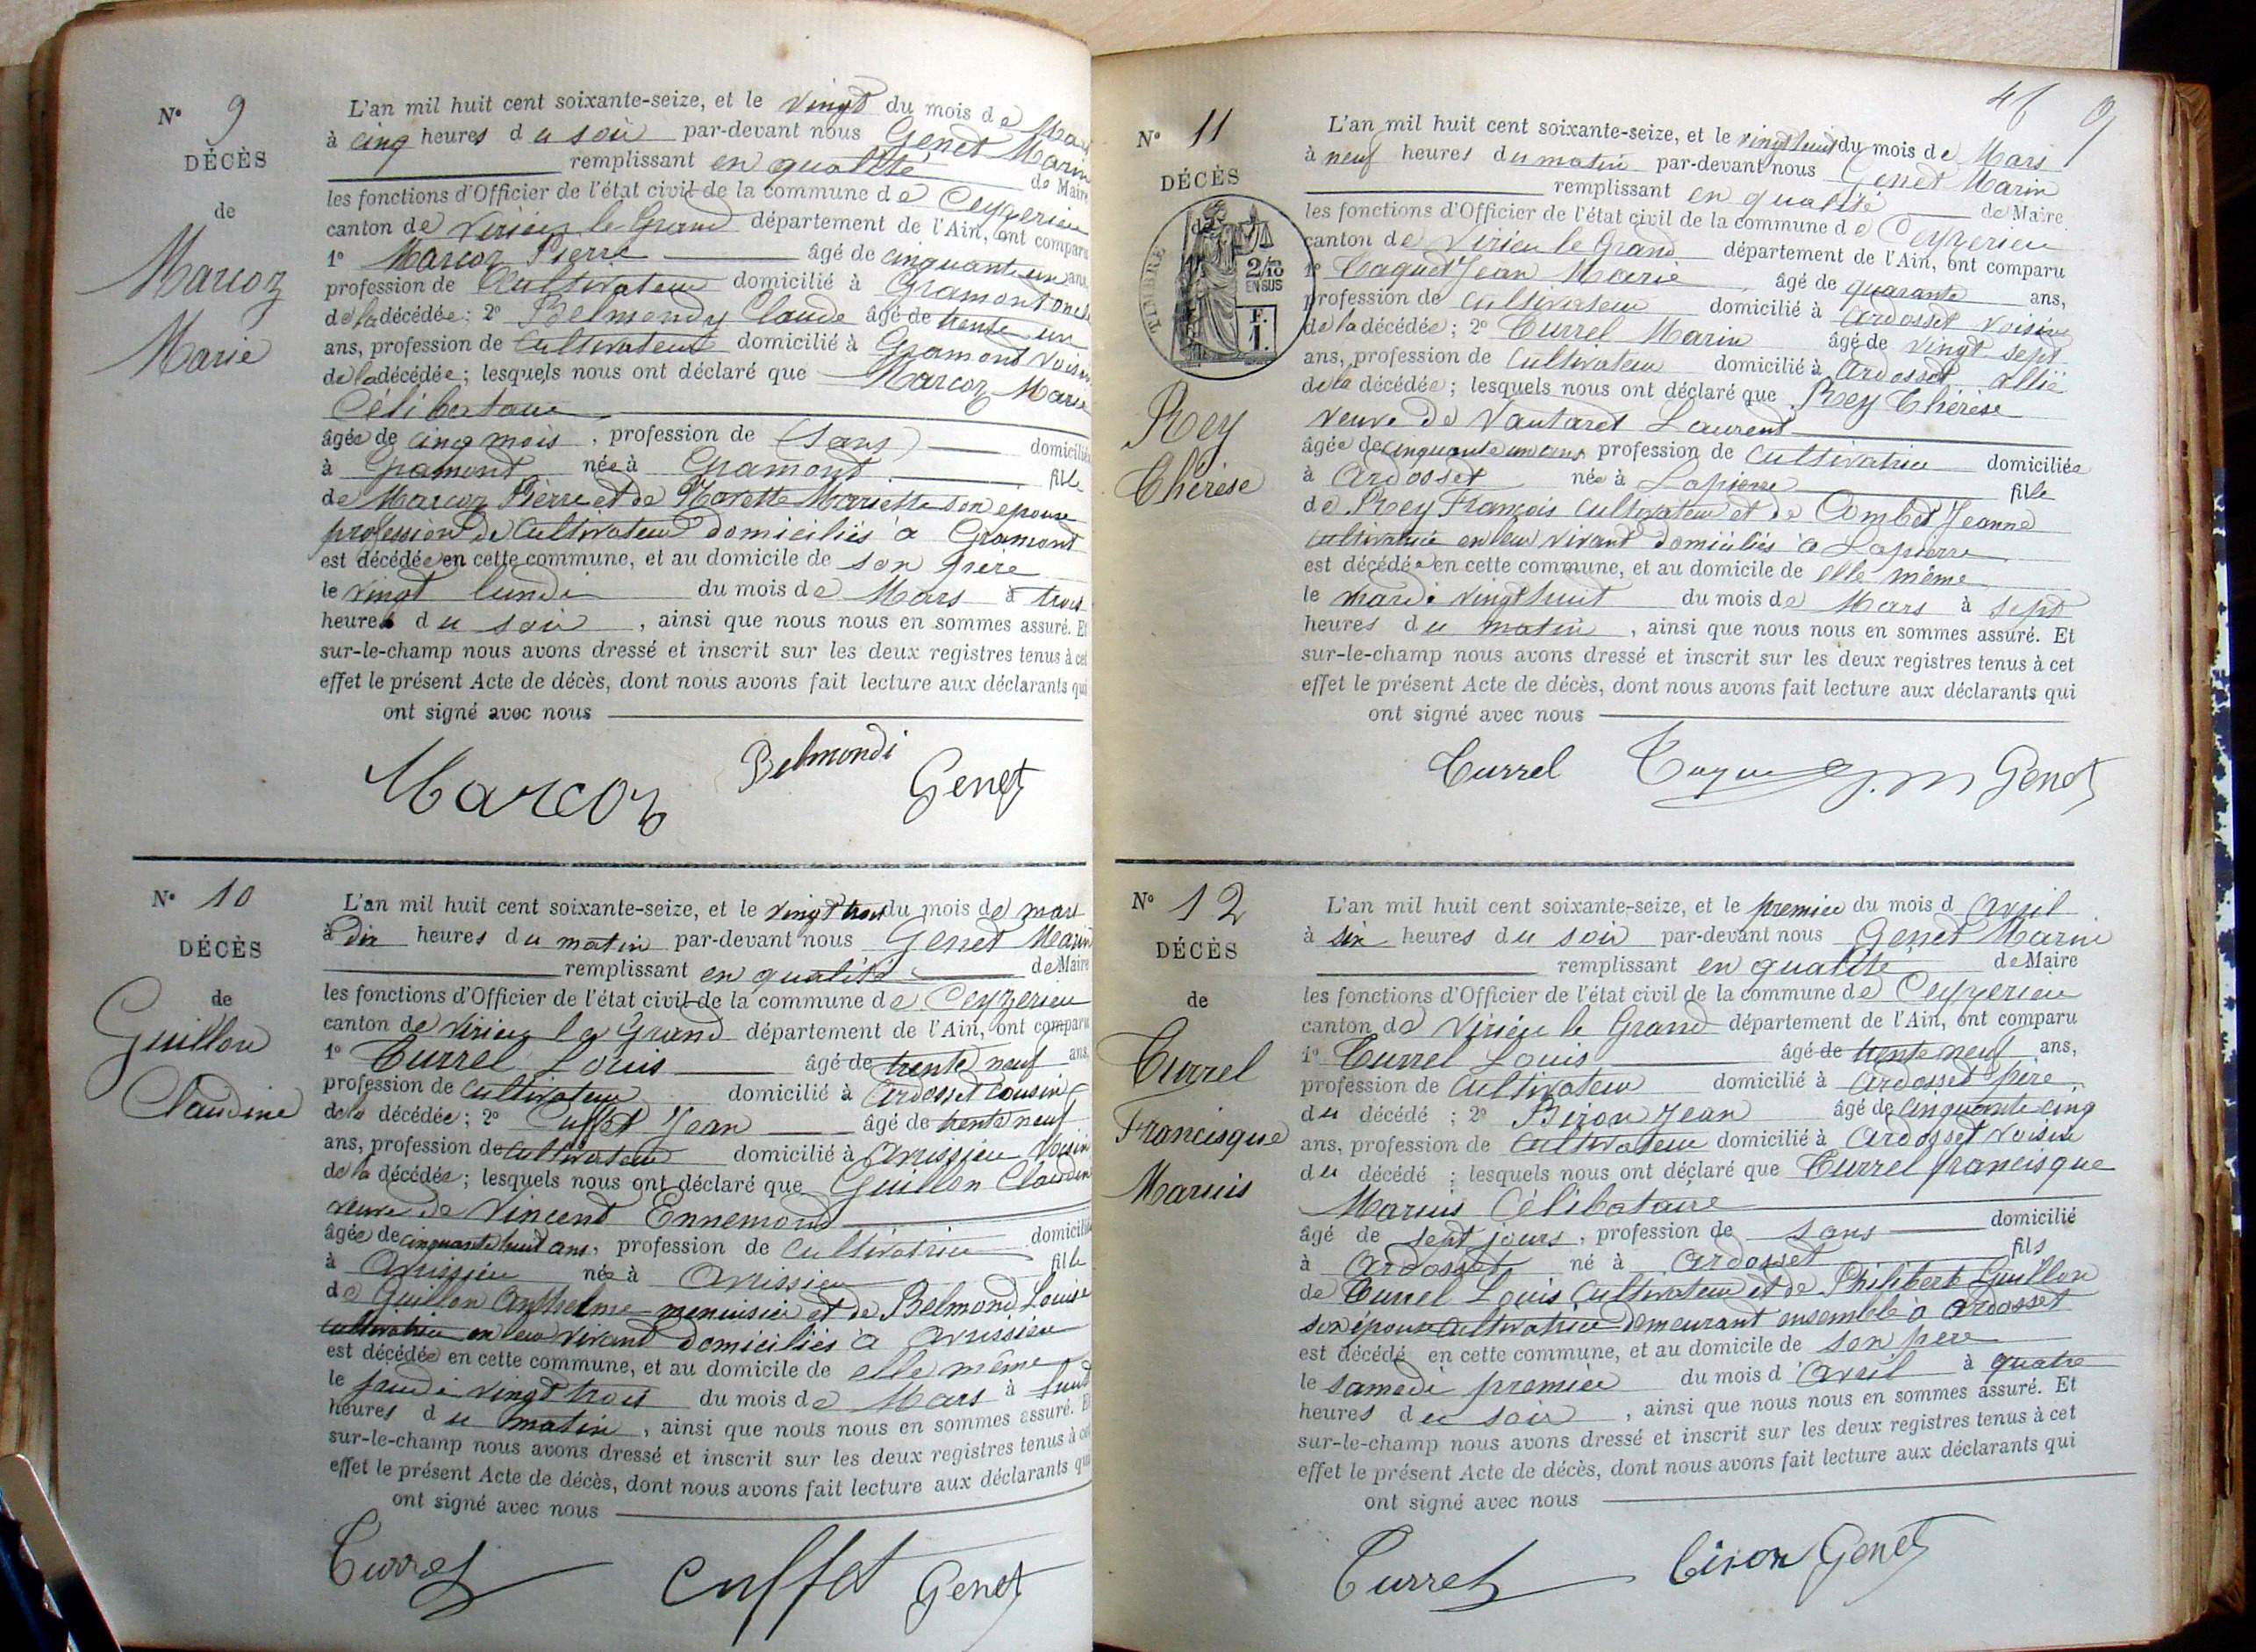 N° 9
DÉCÈS
de
Marcoz
Marie
L'an mil huit cent soixante-seize, et le vingt du mois de Mars
à cinq heures du soir par-devant nous Genet Marin
remplissant en qualité de Maire
les fonctions d'Officier de l'état civil de la commune de Ceyzerieu
canton de Virieu le Grand département de l'Ain, ont comparu
1° Marcoz Pierre âgé de cinquante un ans,
profession de Cultivateur domicilié à Gramont oncle
de la décédée; 2° Belmondy Claude âgé de trente un
ans, profession de Cultivateur domicilié à Gramont voisin
de la décédée; lesquels nous ont déclaré que Marcoz Marie
Célibataire
âgée de cinq mois, profession de (sans) domiciliée
à Gramont née à Gramont fille
de Marcoz Pierre et de Mariette son epouse
profession de Cultivateur domiciliés à Gramont
est décédée en cette commune, et au domicile de son père
le vingt lundi du mois de Mars à trois
heures du soir, ainsi que nous nous en sommes assuré. Et
sur-le-champ nous avons dressé et inscrit sur les deux registres tenus à cet
effet le présent Acte de décès, dont nous avons fait lecture aux déclarants qui
ont signé avec nous
Marcoz Belmondi Genet
N° 10
DÉCÈS
de
Guillon
Claudine
L'an mil huit cent soixante-seize, et le vingt trois du mois de mars
à dix heures du matin par-devant nous Genet Marin
remplissant en qualité de Maire
les fonctions d'Officier de l'état civil de la commune de Ceyzerieu
canton de Virieu le Grand département de l'Ain, ont comparu
1° Currel Louis âgé de trente neuf ans,
profession de Cultivateur domicilié à Ardosset cousin
de la décédée; 2° Cuffet Jean âgé de trente neuf
ans, profession de Cultivateur domicilié à Avrissieu voisin
de la décédée; lesquels nous ont déclaré que Guillon Claudine
veuve de Vincent Ennemond
âgée de cinquante huit ans, profession de Cultivatrice domiciliée
à Avrissieu née à Avrissieu fille
de Guillon Anthelme menuisier et de Belmond Louise
cultivatrice en leur vivant domiciliés à Avrissieu
est décédée en cette commune, et au domicile de elle même
le jeudi vingt trois du mois de Mars à huit
heures du matin, ainsi que nous nous en sommes assuré. Et
sur-le-champ nous avons dressé et inscrit sur les deux registres tenus à cet
effet le présent Acte de décès, dont nous avons fait lecture aux déclarants qui
ont signé avec nous
Currel Cuffet Genet
46 9
N° 11
DÉCÈS
de
TIMBRE
2/10
EN SUS
F.
1.
Rey
Thérèse
L'an mil huit cent soixante-seize, et le vingt huit du mois de Mars
à neuf heures du matin par-devant nous Genet Marin
remplissant en qualité de Maire
les fonctions d'Officier de l'état civil de la commune de Ceyzerieu
canton de Virieu le Grand département de l'Ain, ont comparu
1° Caquet Jean Marie âgé de quarante ans,
profession de Cultivateur domicilié à Ardosset voisin
de la décédée; 2° Currel Marin âgé de vingt sept
ans, profession de Cultivateur domicilié à Ardosset allié
de la décédée; lesquels nous ont déclaré que Rey Thérèse
veuve de Vautaret Laurent
âgée de cinquante un ans, profession de Cultivatrice domiciliée
à Ardosset née à Lapierre fille
de Rey François Cultivateur et de Combet Jeanne
cultivatrice en leur vivant domiciliés à Lapierre
est décédée en cette commune, et au domicile de elle même
le mardi vingt huit du mois de Mars à sept
heures du matin, ainsi que nous nous en sommes assuré. Et
sur-le-champ nous avons dressé et inscrit sur les deux registres tenus à cet
effet le présent Acte de décès, dont nous avons fait lecture aux déclarants qui
ont signé avec nous
Currel J. M Genet
N° 12
DÉCÈS
de
Currel
Francisque
Marius
L'an mil huit cent soixante-seize, et le premier du mois d Avril
à six heures du soir par-devant nous Genet Marin
remplissant en qualité de Maire
les fonctions d'Officier de l'état civil de la commune de Ceyzerieu
canton de Virieu le Grand département de l'Ain, ont comparu
1° Currel Louis âgé de trente neuf ans,
profession de Cultivateur domicilié à Ardosset père
du décédé; 2° Jean âgé de cinquante cinq
ans, profession de Cultivateur domicilié à Ardosset voisin
du décédé; lesquels nous ont déclaré que Currel francisque
Marius Célibataire
âgé de sept jours, profession de sans domicilié
à Ardosset né à Ardosset fils
de Currel Louis Cultivateur et de Philiberte Guillon
son épouse cultivatrice demeurant ensemble à Ardosset
est décédé en cette commune, et au domicile de son père
le samedi premier du mois d'Avril à quatre
heures du soir, ainsi que nous nous en sommes assuré. Et
sur-le-champ nous avons dressé et inscrit sur les deux registres tenus à cet
effet le présent Acte de décès, dont nous avons fait lecture aux déclarants qui
ont signé avec nous
Currel Genet